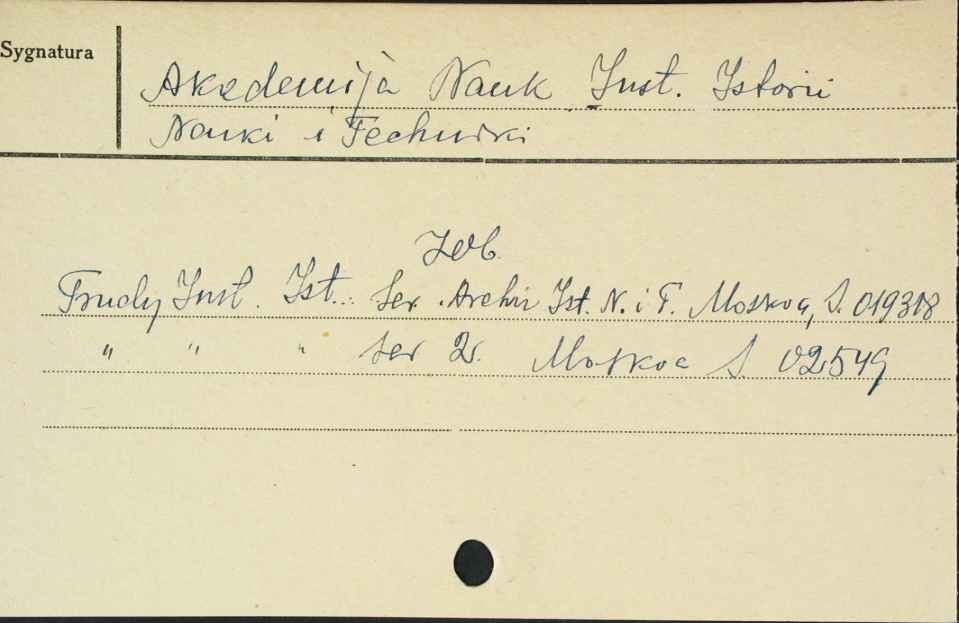 Sygnatura
Akademija Nauk Inst. Istorii
Nauki i Techniki
Zob.
Trudy Inst. Ist... Ser. Archiv Ist. N. i T. Moskva, S. 019318
" " " ser 2. Moskva S. 02549